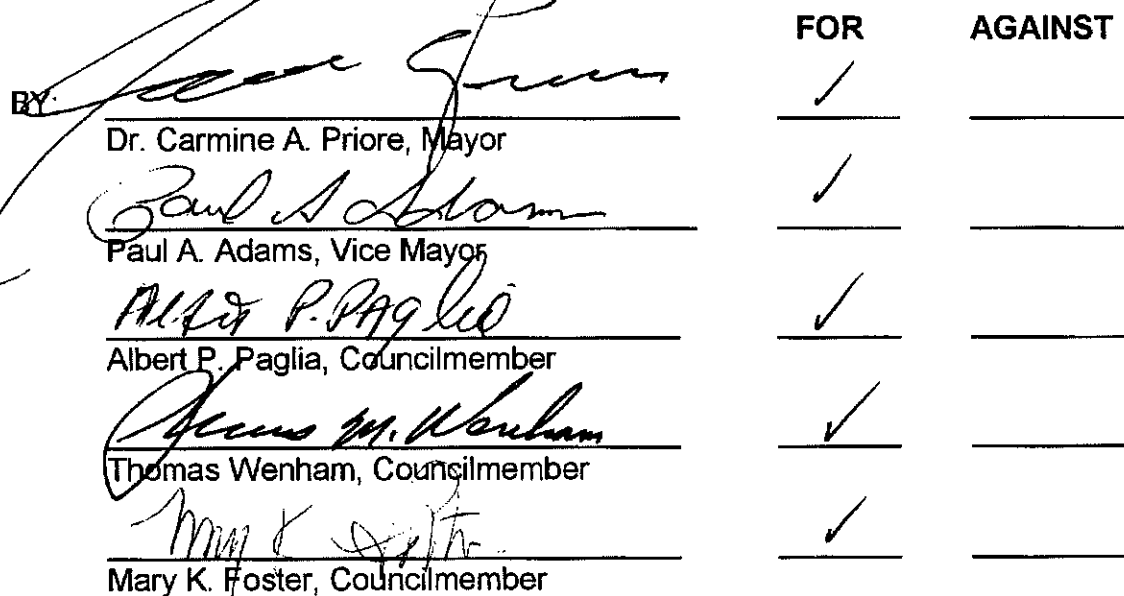 FOR AGAINST
BY: ✓
Dr. Carmine A. Priore, Mayor
Paul A Adams ✓
Paul A. Adams, Vice Mayor
Albert P. Paglia ✓
Albert P. Paglia, Councilmember
Thomas M. Wenham ✓
Thomas Wenham, Councilmember
Mary K Foster ✓
Mary K. Foster, Councilmember